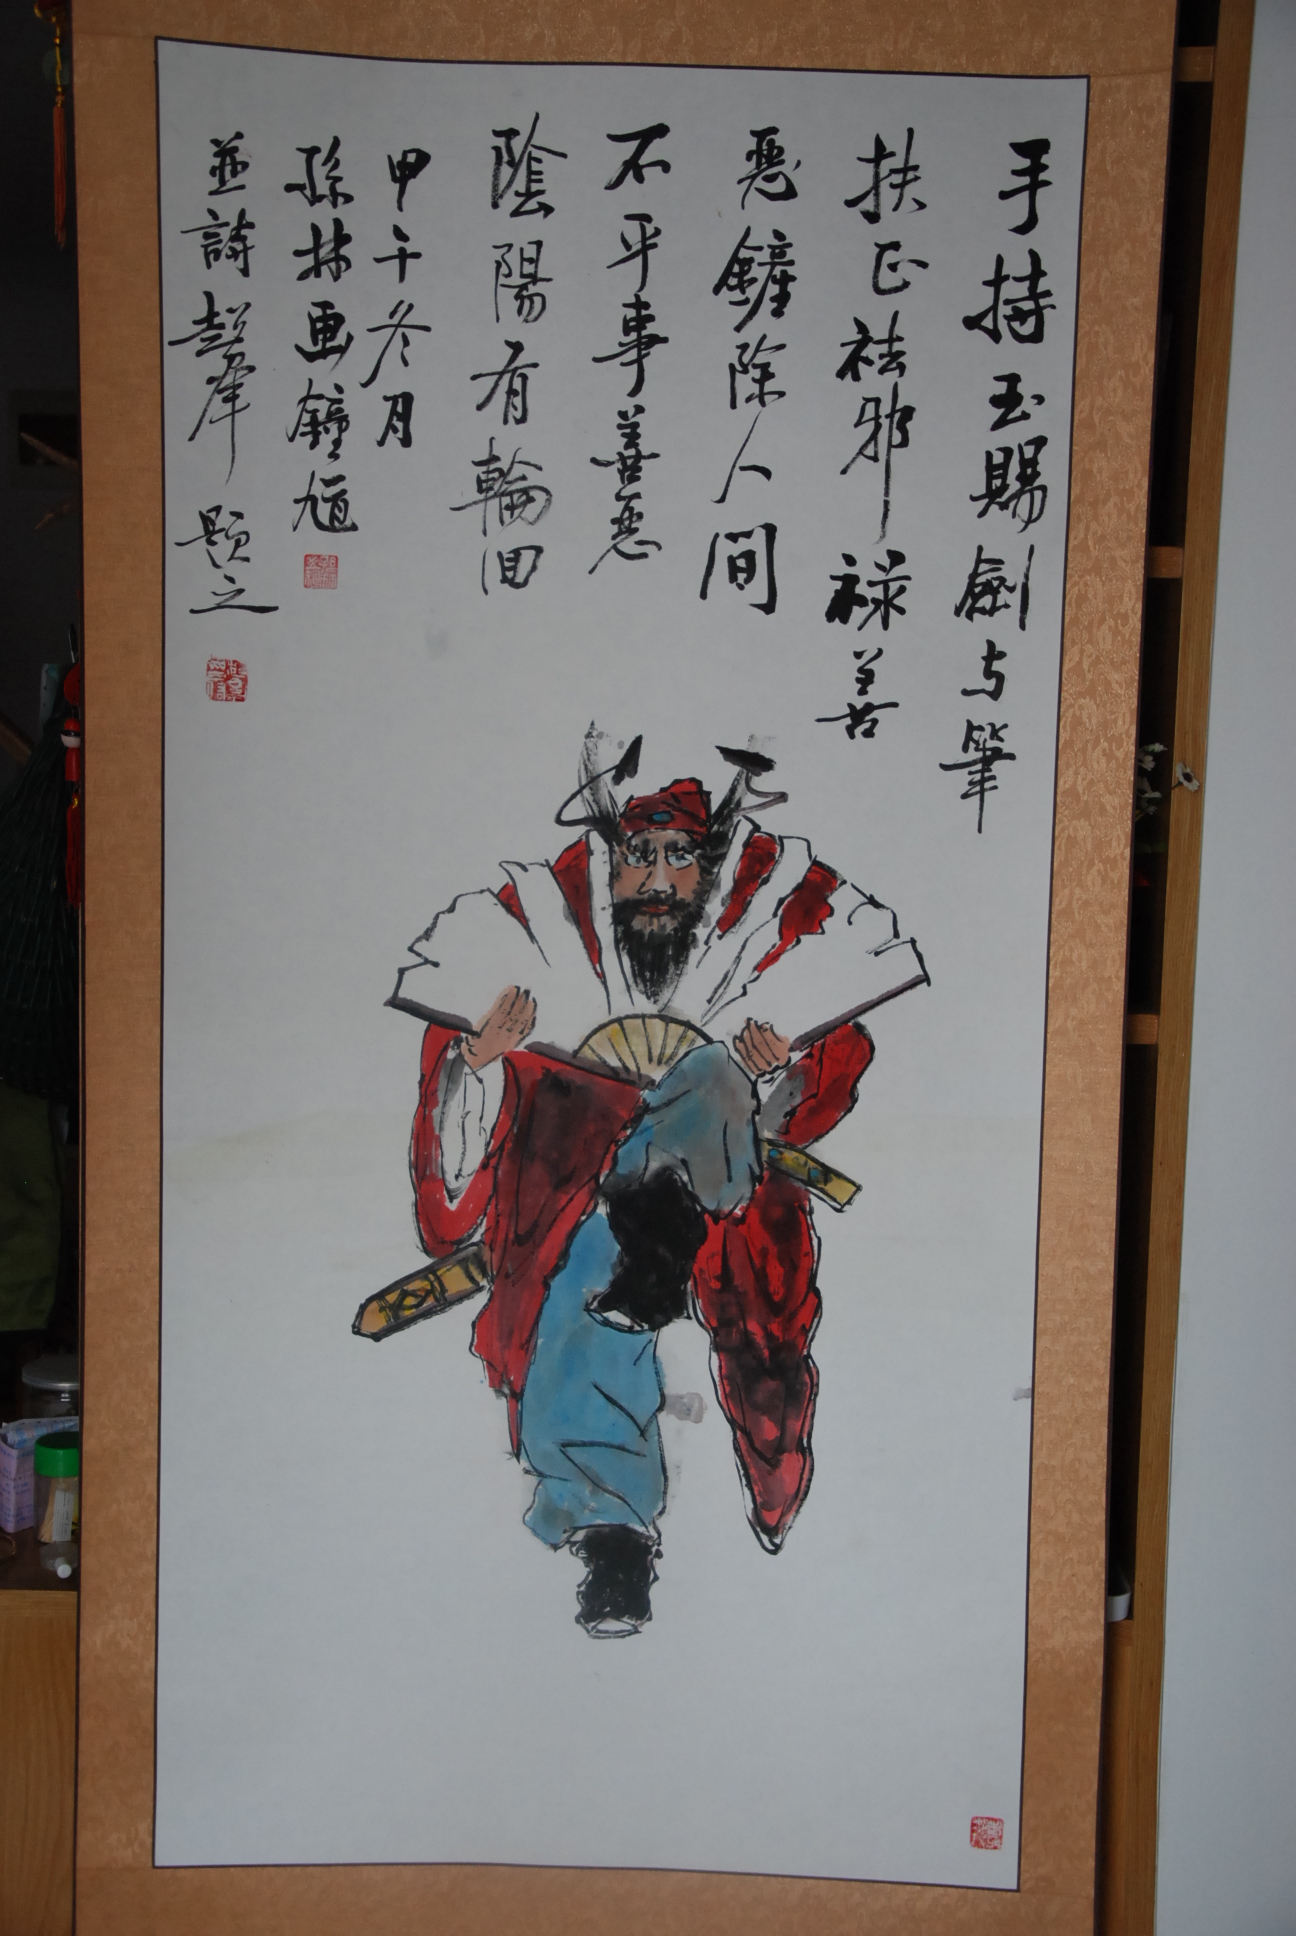 手持玉賜劍与筆
扶正祛邪祿善
惡鏟除人間
不平事善惡
陰陽有輪回
甲午冬月
孫林画鐘馗
並詩 題之